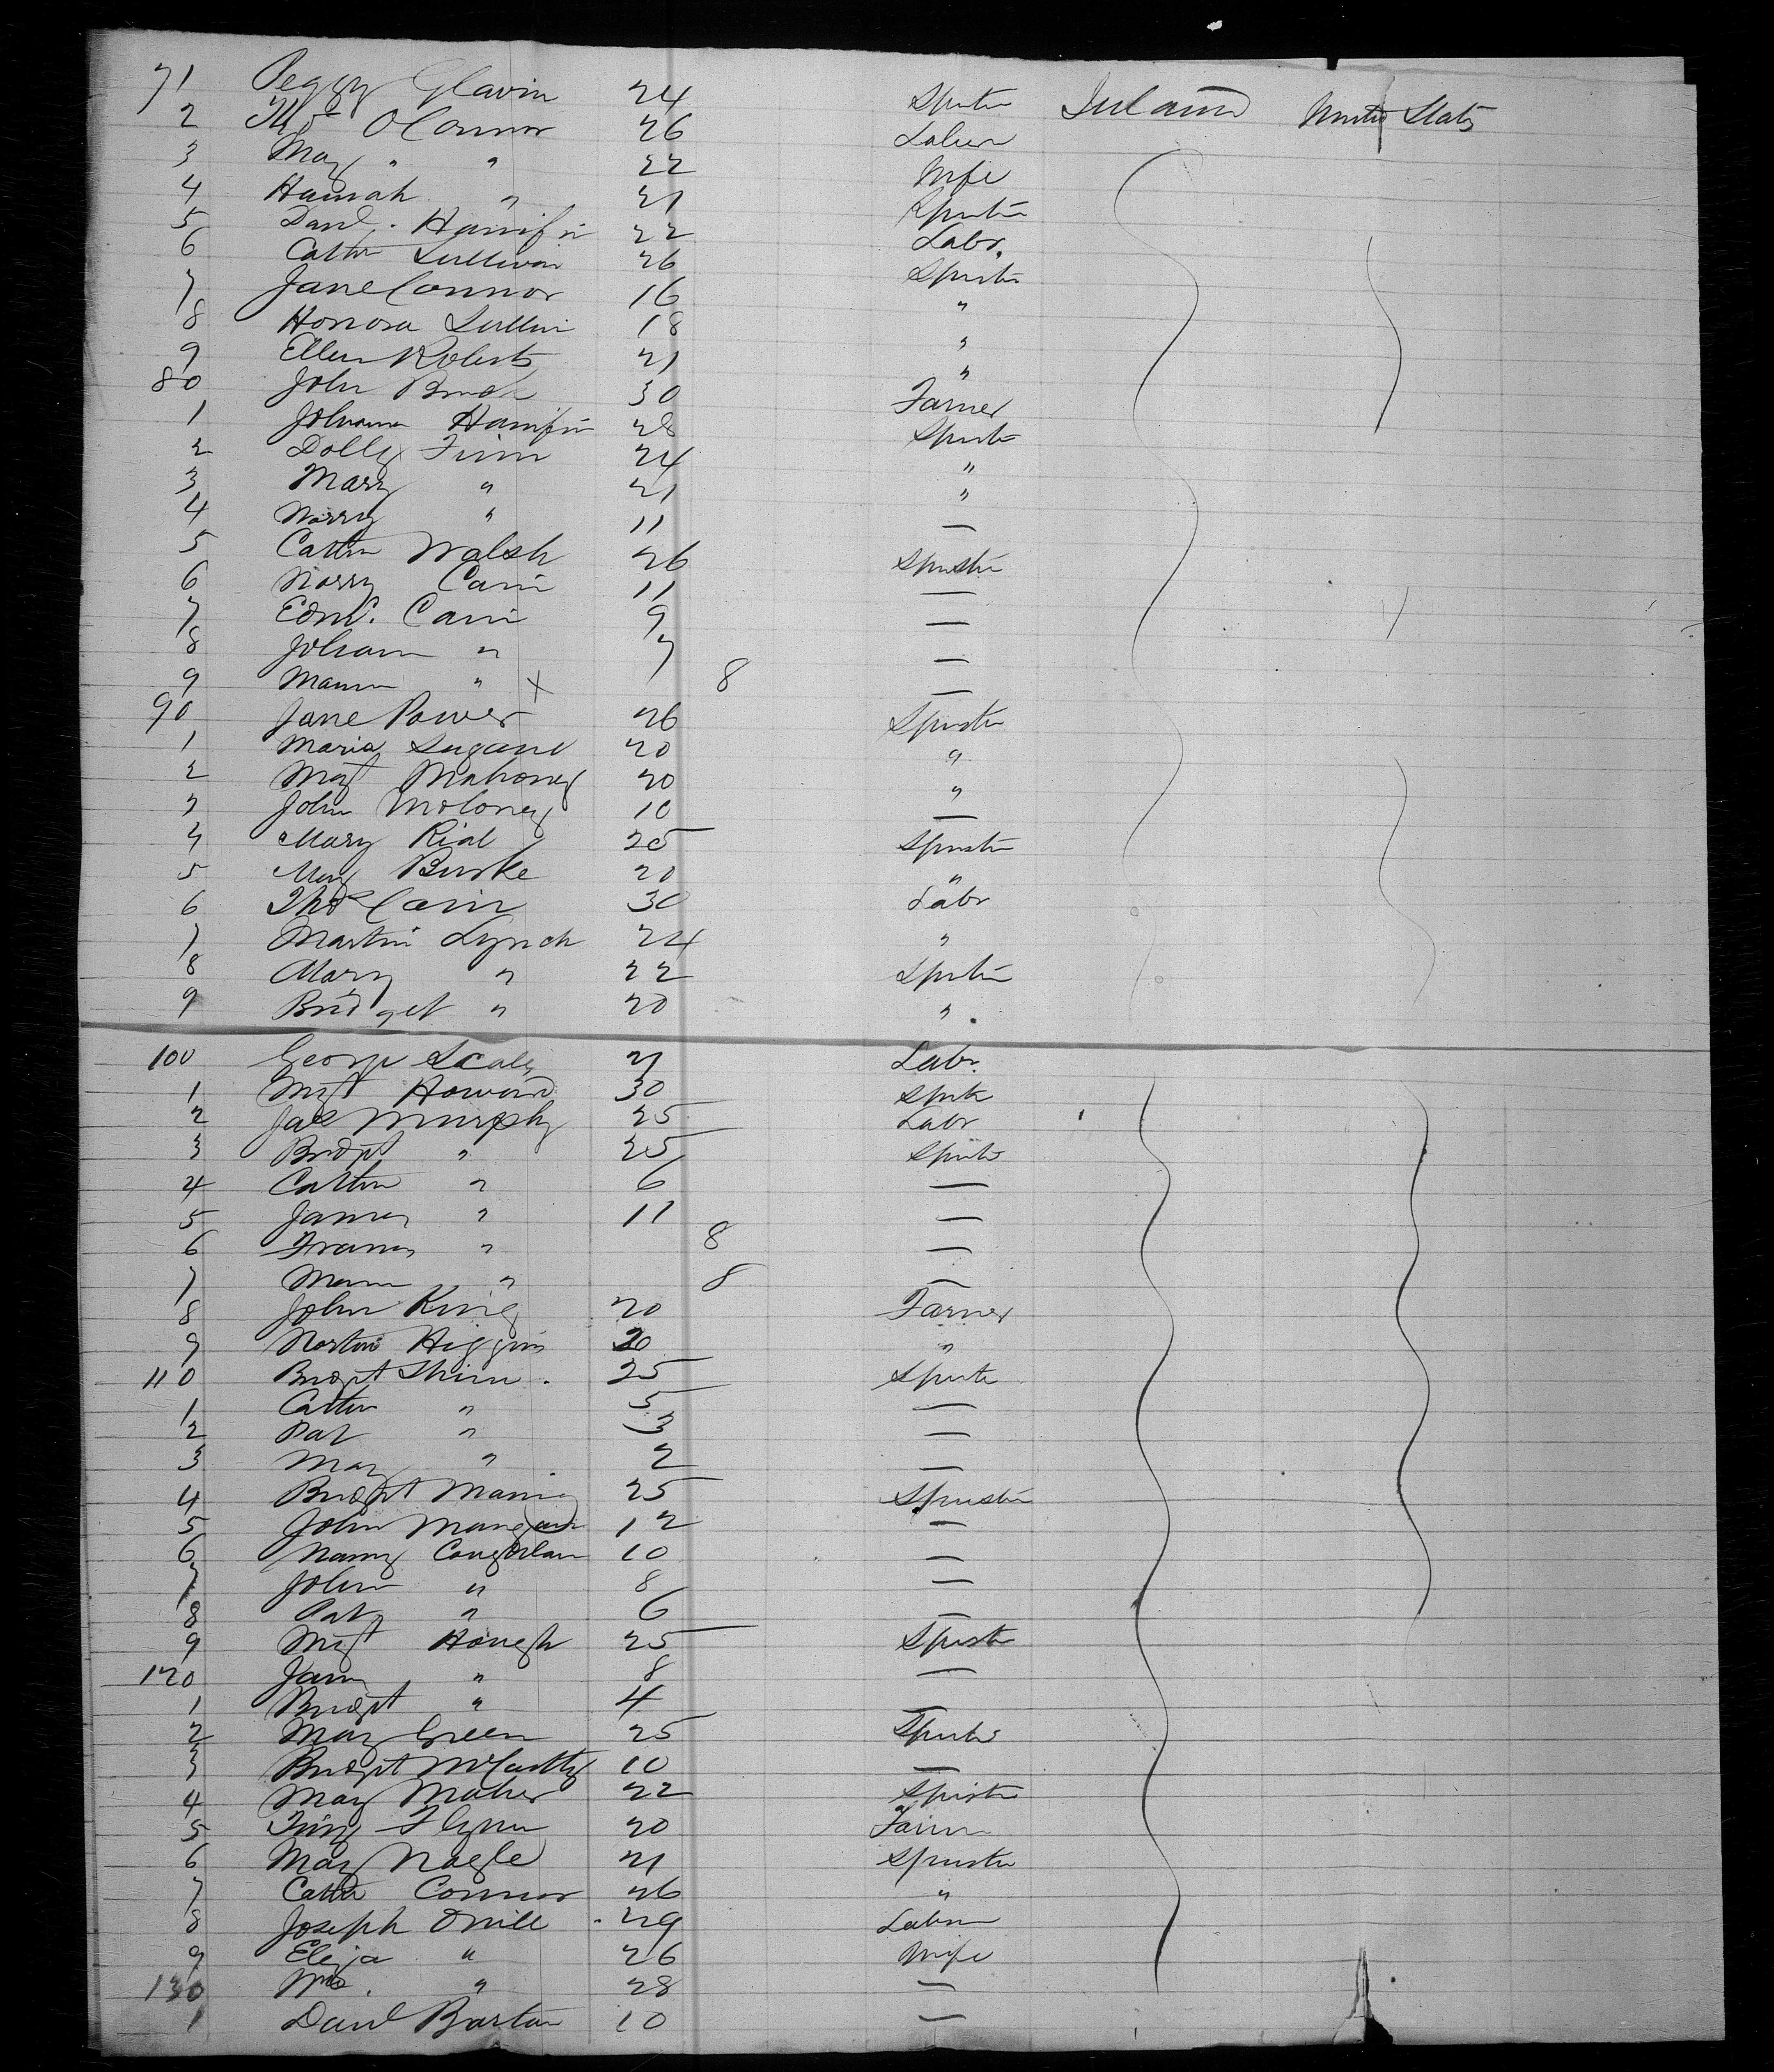 71 Peggy Glavin 24 Spinster Ireland United States
2 O'Connor 26 Labur
3 May " " 22 Wife
4 Hannah " 21 Spinstr
5 Danl. Hanifin 22 Labr.
6 Cathn Sullivan 26 Spinstr
7 Jane Connor 16 "
8 Honora Sullivn 18 "
9 Ellen Roberts 21 "
80 John 30 Farmer
1 Johanna Hanifin 28 Spinstr
2 Dolly Finn 24 "
3 Mary " 21 "
4 Norry " 11 —
5 Cathn Walsh 26 Spinster
6 Norry Cain 11 —
7 Edmd. Cain 9 —
8 Johann " 7 —
9 " X 8 —
90 Jane Power 26 Spinster
1 Maria 20 "
2 Mgt Mahoney 20 "
3 John Moloney 10 —
4 Mary Rial 25 Spinster
5 Mary Burke 20 "
6 Thos Cain 30 Labr
7 Martin Lynch 24 "
8 Mary " 22 Spinstr
9 Bridget " 20 "
100 George Scaly 21 Labr.
1 Mgt Howard 30 Spinstr
2 Jas Murphy 25 Labr
3 Bridgt " 25 Spinstr
4 Cathn " 6 —
5 James " 11 —
6 Francis " 8 —
7 " 8 —
8 John King 20 Farmer
9 Higgins 20 "
110 Bridgt 25 Spinstr
1 Cathn " 5 —
2 Pat " 3 —
3 May " 2 —
4 Bridgt 25 Spinster
5 John Mangan 12 —
6 Nanny Coughlan 10 —
7 John " 8 —
8 Pat " 6 —
9 Mgt Hough 25 Spinstr
120 Jam " 8 —
1 Bridgt " 4 —
2 May Green 25 Spinstr
3 Bridgt McCarthy 10 —
4 May Maher 22 Spinstr
5 Timy Flynn 20 Farmr
6 May Nagle 21 Spinster
7 Cathn Connor 26 "
8 Joseph ONeill 29 Labur
9 Eliza " 26 Wife
130 " 28 —
1 Danl Barton 10 —